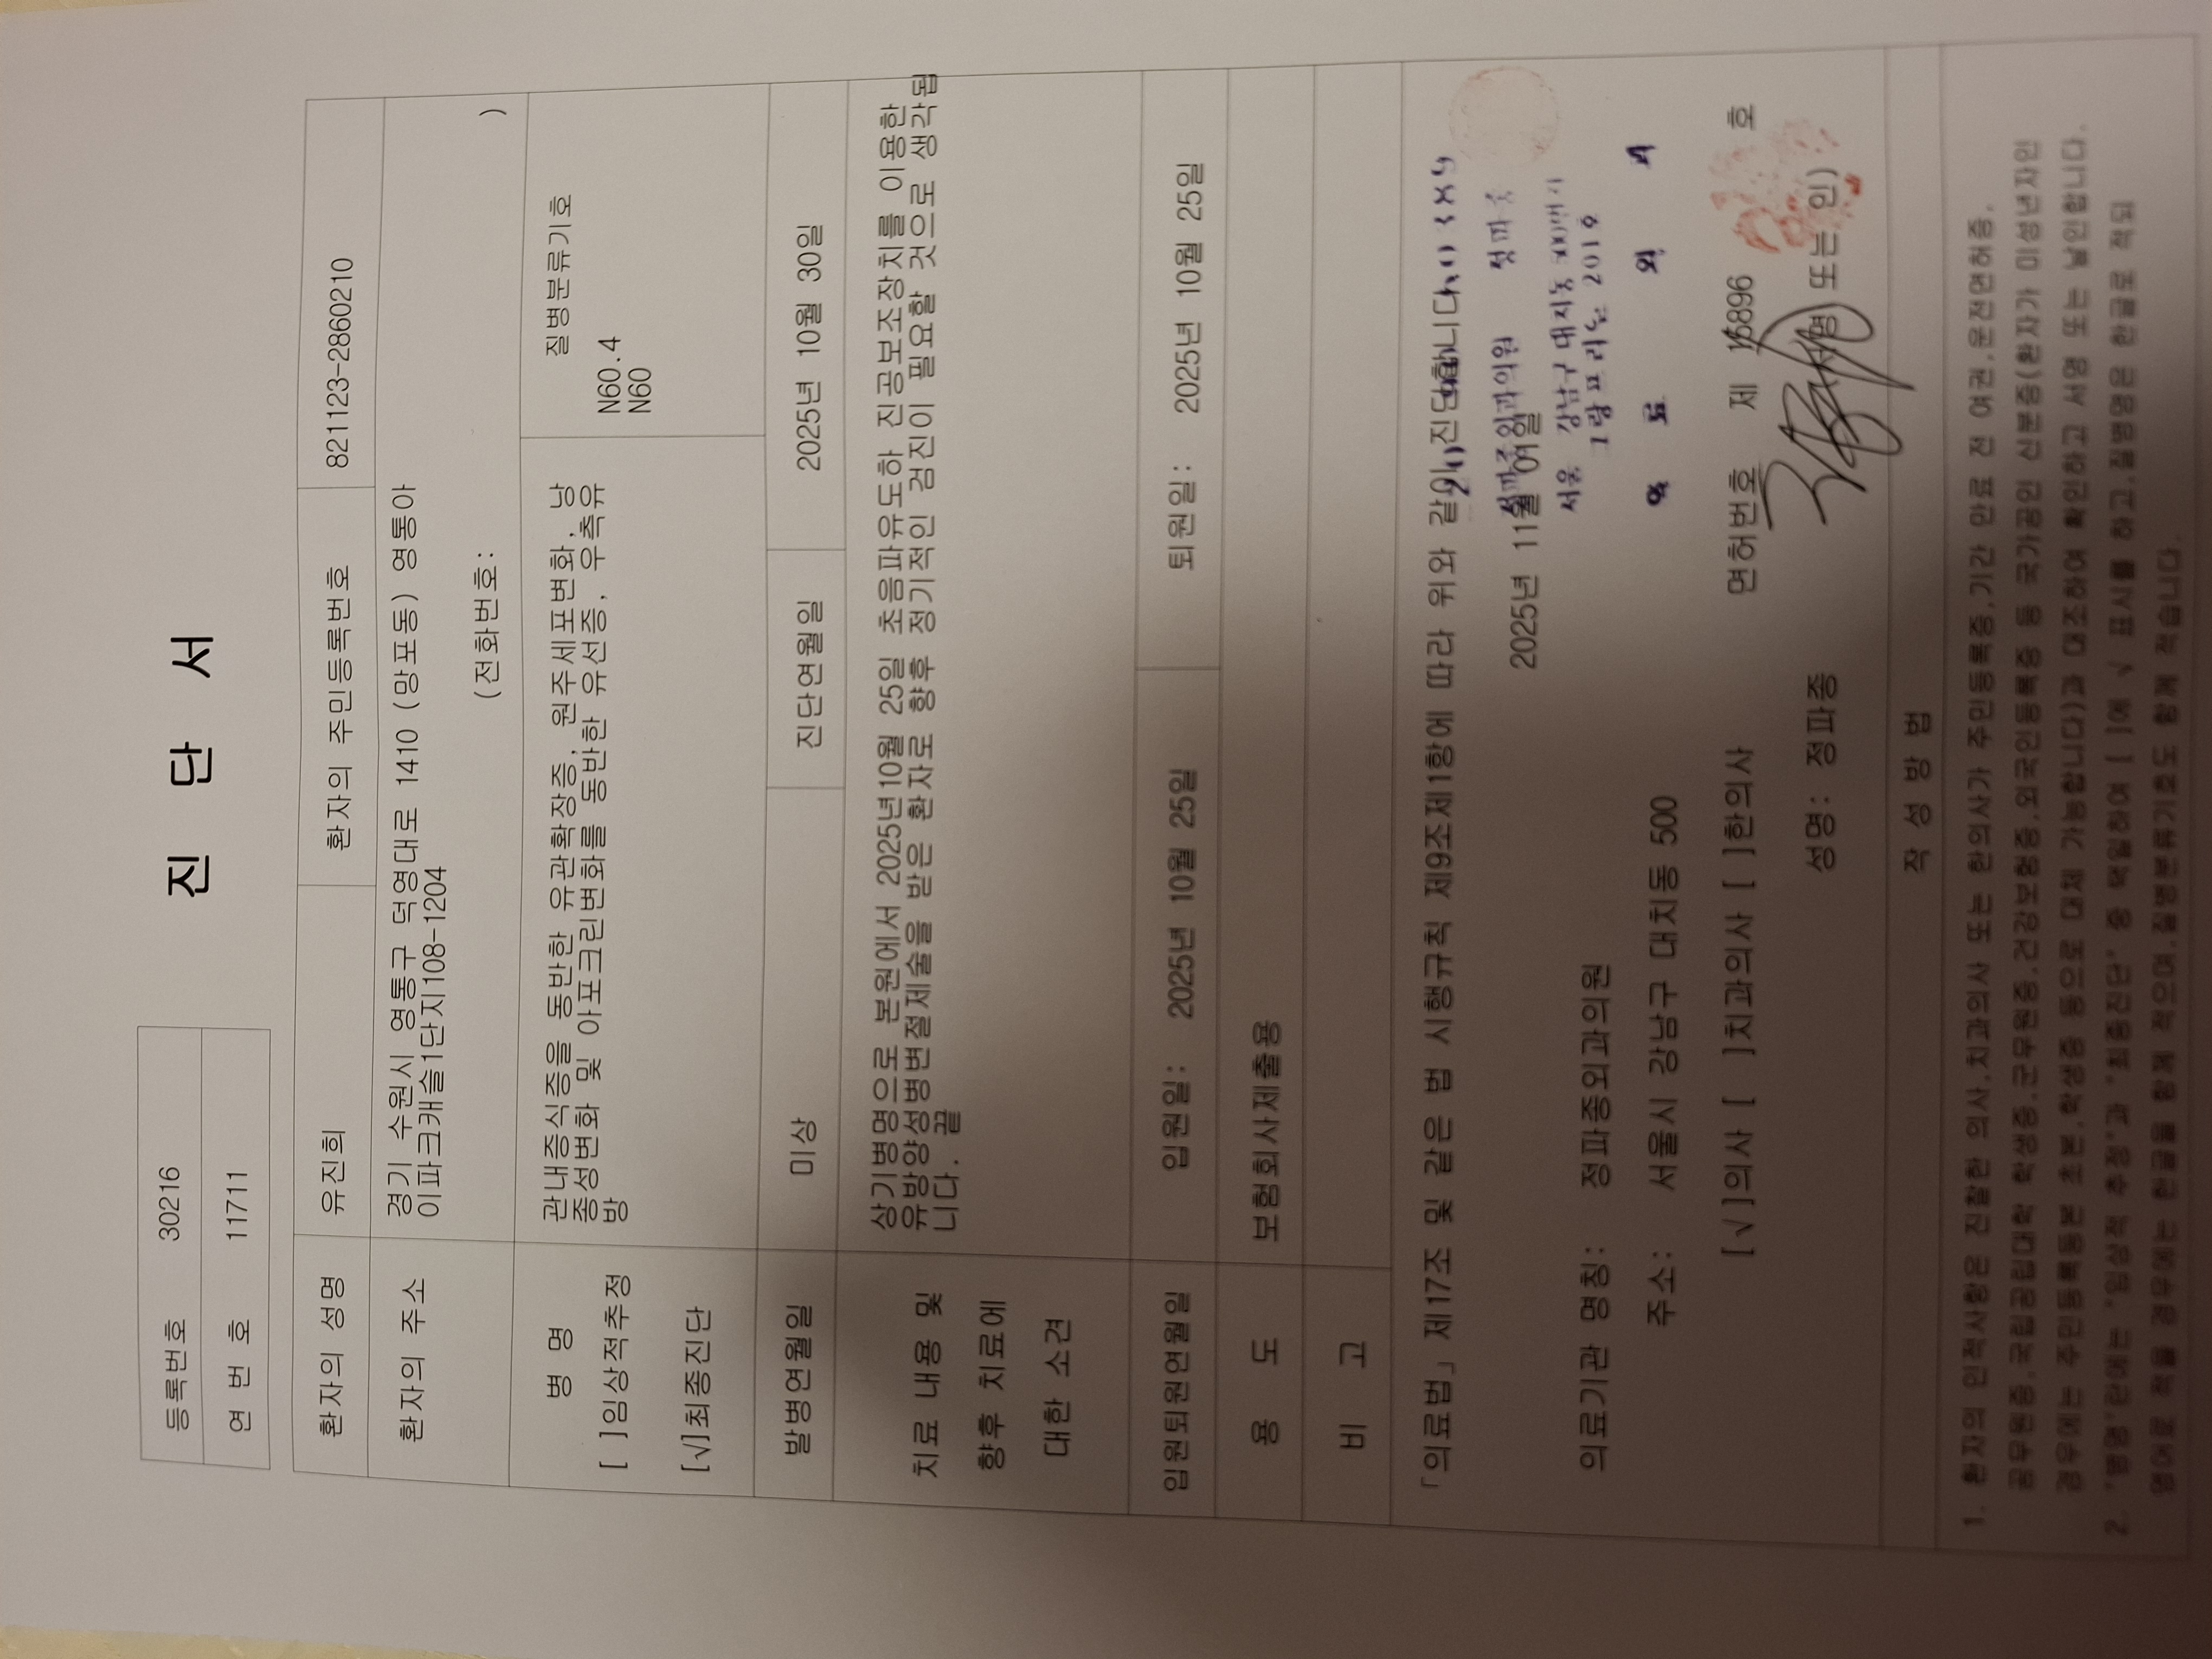 등록번호 30216
연 번 호 11711
진 단 서
환자의 성명 유진희 환자의 주민등록번호 821123-2860210
환자의 주소 경기 수원시 영통구 덕영대로 1410 (망포동) 영통아
이파크캐슬1단지108-1204
(전화번호: )
병 명
[ ]임상적추정
[√]최종진단
관내증식증을 동반한 유관확장증, 원주세포변화, 낭
종성변화 및 아포크린변화를 동반한 유선증, 우측유
방
질병분류기호
N60.4
N60
발병연월일 미상 진단연월일 2025년 10월 30일
치료 내용 및
향후 치료에
대한 소견
상기병명으로 본원에서 2025년10월 25일 초음파유도하 진공보조장치를 이용한
유방양성병변절제술을 받은 환자로 향후 정기적인 검진이 필요할 것으로 생각됩
니다. 끝
입원퇴원연월일 입원일: 2025년 10월 25일 퇴원일: 2025년 10월 25일
용 도 보험회사제출용
비 고
「의료법」 제17조 및 같은 법 시행규칙 제9조제1항에 따라 위와 같이 진단합니다.
2025년 11월
의료기관 명칭: 정파종외과의원
주소: 서울시 강남구 대치동 500
[√]의사 [ ]치과의사 [ ]한의사 면허번호 제 호
성명: 정파종 (서명 또는 인)
작 성 방 법
1. 환자의 인적사항은 진찰한 의사.치과의사 또는 한의사가 주민등록증,기간 만료 전 여권.운전면허증.
공무원증.국립공립대학 학생증.군무원증.건강보험증.외국인등록증 등 국가공인 신분증(환자가 미성년자인
경우에는 주민등록등본 초본.학생증 등으로 대체 가능합니다)과 대조하여 확인하고 서명 또는 날인합니다.
2. "병명"란에는 "임상적 추정"과 "최종진단" 중 택일하여 [ ]에 √ 표시를 하고,질병명은 한글로 적되
영어로 적을 경우에는 한글을 함께 적으며,질병분류기호도 함께 적습니다.